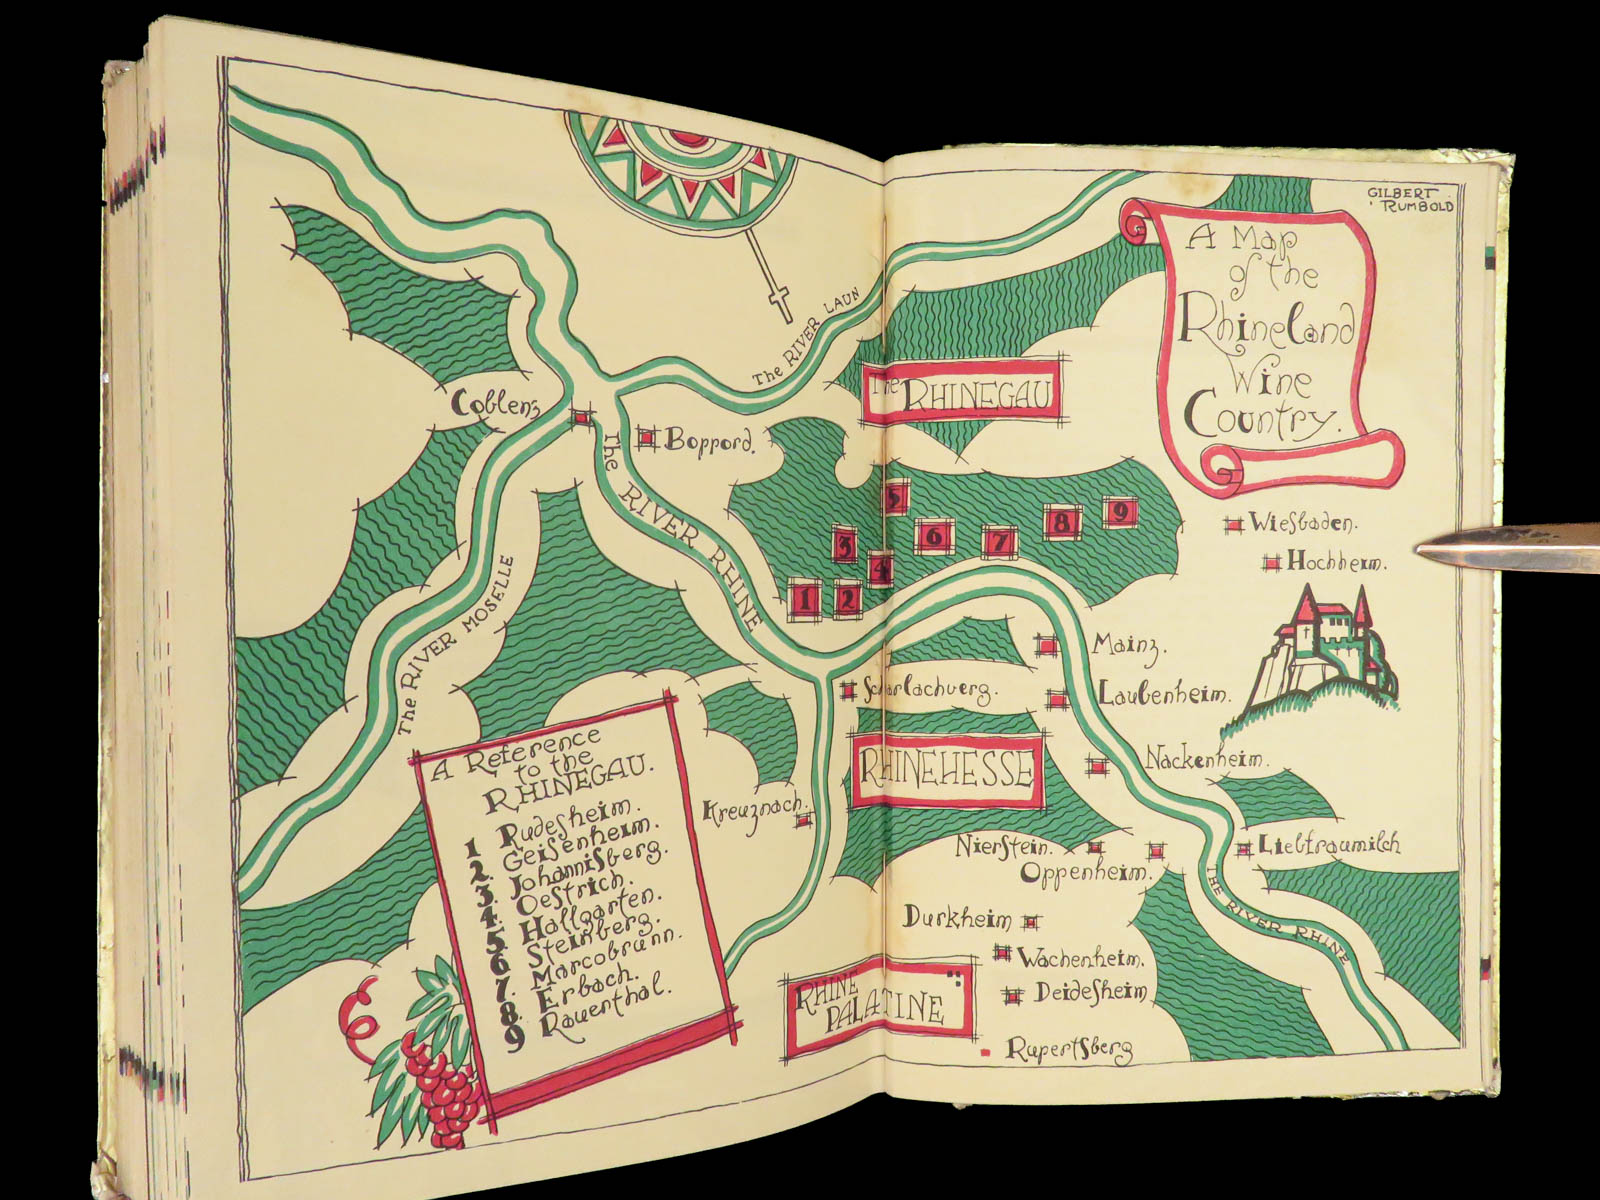 GILBERT
RUMBOLD
A Map
of the
Rhineland
Wine
Country.
The RIVER LAUN
The RHINEGAU
Coblenz
Boppord.
The RIVER RHINE
The RIVER MOSELLE
5
6
7
8
9
3
4
1
2
Wiesbaden.
Hochheim.
Mainz.
Scharlachverg.
Laubenheim.
RHINEHESSE
Nackenheim.
Kreuznach.
Nierstein.
Oppenheim.
Liebfraumilch
THE RIVER RHINE
Durkheim
Wachenheim.
Deidesheim
RHINE
PALATINE
Rupertsberg
A Reference
to the
RHINEGAU.
1 Rudesheim.
2. Geisenheim.
3. Johannisberg.
4. Oestrich.
5. Hallgarten.
6. Steinberg.
7. Marcobrunn.
8. Erbach.
9 Rauenthal.